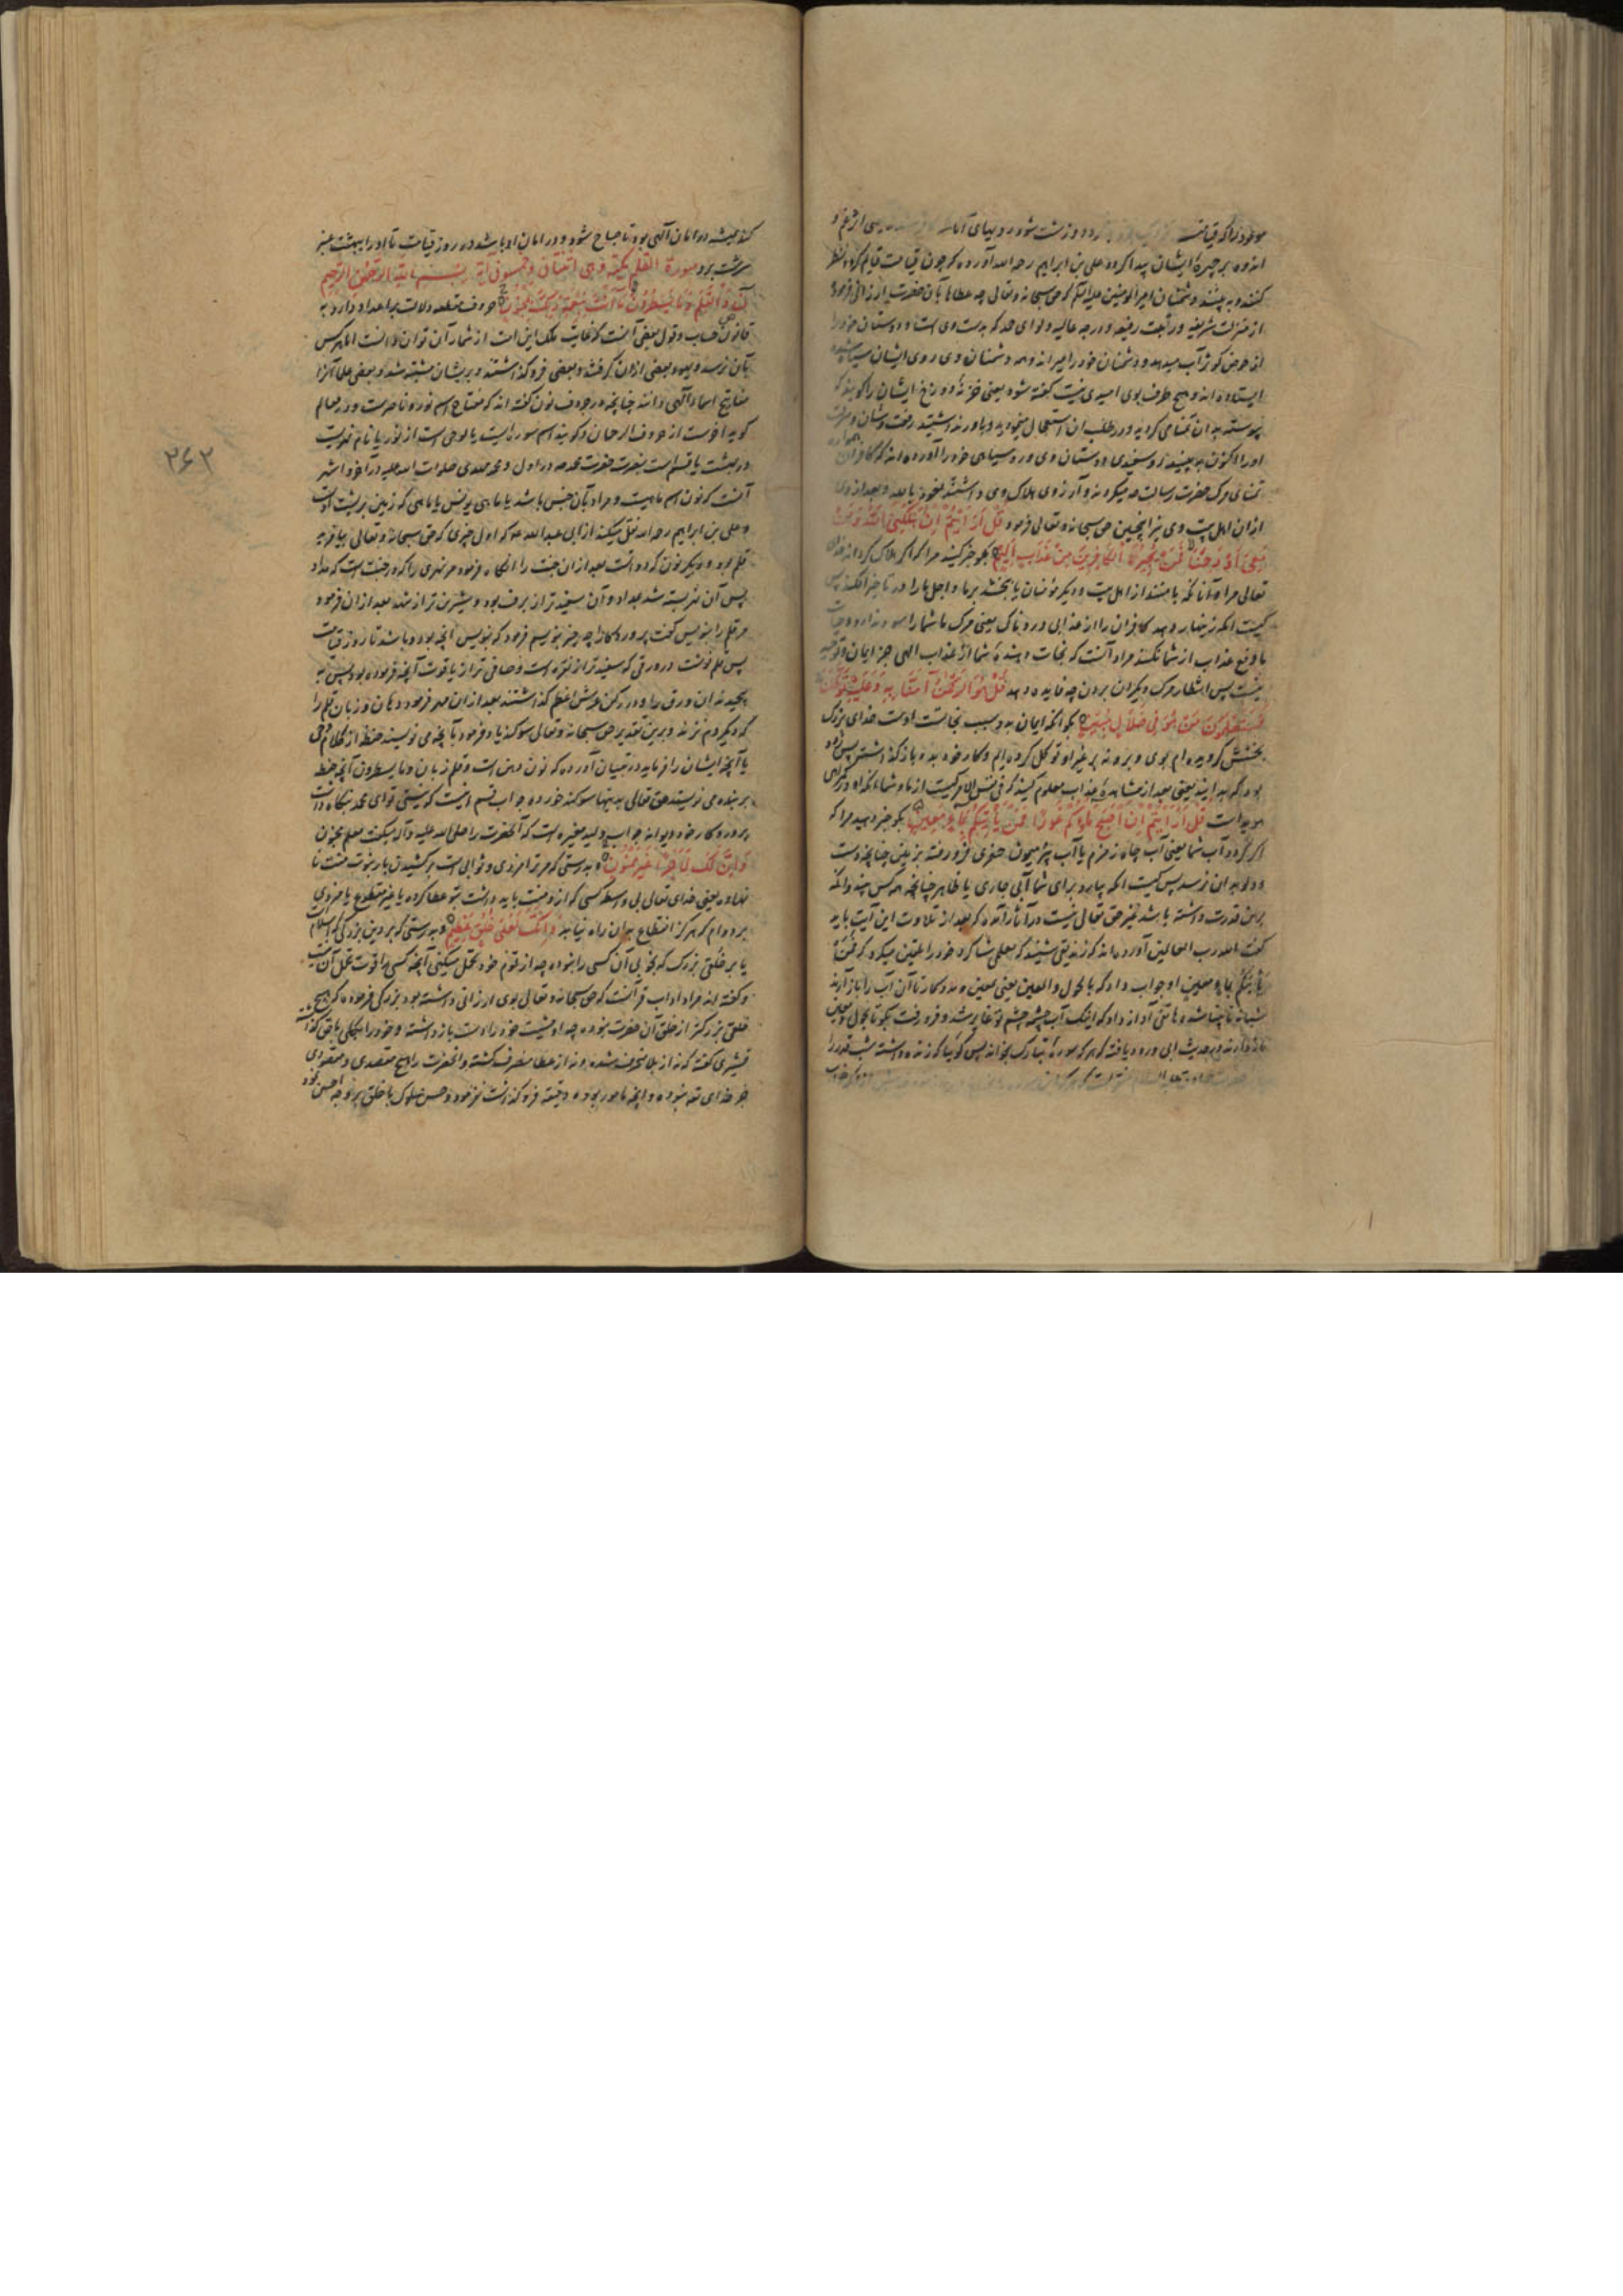 اندوه بر چهرهٔ ایشان پیدا کرده علی بن ابراهیم رحمه الله آورده که چون قیامت قایم کردد نظر
کنند و به بینند دشمنان امیر المومنین علیه السلم که حق سبحانه و تعالی چه عطاها بآن حضرت ارزانی فرموده
از منزلت شریفه و رتبت رفیعه و درجه عالیه و لوای حمد که بدست وی است و دوستان خود را
از حوض کوثر آب میدهد و دشمنان خود را میراند و همه دشمنان وی روی ایشان سیاه شده
ایستاده اند و هیچ طرف بوی امیدی نیست کفته شود یعنی خزنهٔ دوزخ ایشان را کویند که
پیوسته بدان تمنامی کردید و در طلب ان استعجال مینمودید و باور نداشتید
اورا اکنون به بینید رو سفیدی دوستان وی و رو سیاهی خود را آورده اند که کافران
تمنای مرک حضرت رسالت میکردند و آرزوی هلاک وی داشتند نعوذ بالله و بعد از وی
ازان اهل بیت وی نیز اینچنین حق سبحانه و تعالی فرمود قُلْ اَرَاَیْتُمْ اِنْ اَهْلَکَنِیَ اللّٰهُ وَمَنْ
مَعِیَ اَوْ رَحِمَنَا فَمَنْ یُجِیرُ الْکَافِرِینَ مِنْ عَذَابٍ اَلِیمٍ بکو خبر کنید مرا که اکر هلاک کرداند خدای
تعالی مرا و آنانکه با منند از اهل بیت و دیکر مؤمنان یا ببخشد بر ما و اجل ما را در تاخیر افکند پس
کیست انکه زینهار دهد کافران را از عذابی دردناک یعنی مرک ما شما را سود ندارد
یا دفع عذاب از شما نکند مراد آنست که نجات دهندهٔ شما از عذاب الهی جز ایمان و توحید
نیست پس انتظار مرک دیکران بردن چه فایده دهد قُلْ هُوَ الرَّحْمٰنُ آمَنَّا بِهِ وَعَلَیْهِ تَوَکَّلْنَا
فَسَتَعْلَمُونَ مَنْ هُوَ فِی ضَلَالٍ مُبِینٍ بکو انکه ایمان به و سبب نجاتست اوست خدای بزرک
بخشش کرویده ام بوی و بروند بر غیر او توکل کرده ایم و کار خود بدو باز کذاشته پس زود
بود که بدانید یعنی بعد از مشاهدهٔ عذاب معلوم کنید که فی نفس الامر کیست از ما و شما انکه او در کمراهی
هویداست قُلْ اَرَاَیْتُمْ اِنْ اَصْبَحَ مَاؤُکُمْ غَوْرًا فَمَنْ یَاْتِیکُمْ بِمَاءٍ مَعِینٍ بکو خبر دهید مرا که
اکر کردد آب شما یعنی آب چاه زمزم یا آب بئر میمون حضری فرو رفته بزمین چنانچه دست
و دلو بدان نرسد پس کیست انکه بیارد برای شما آبی جاری یا ظاهر چنانچه همه کس بیند و انکه
برین قدرت داشته باشد غیر حق تعالی نیست در آثار آمده که بعد از تلاوت این آیت باید
کفت الله رب العالمین آورده اند که زندیقی شنید که معلمی شاکرد خود را تلقین میکرد که فمن
یاتیکم بماء معین او جواب داد که بالمعول و المعین یعنی معین و مددکار تا آن آب را باز آرند
شبانه نابینا شد و هاتفی آواز داد که اینک آب چشمهٔ چشم تو غایر شد و فرو رفت بکو تا بمعول و معین
باز آرند و در حدیث ابی ورد یافته که هر که سوره تبارک بخواند پس کوئیا که زنده داشته شب قدر را

کند همیشه در امان آلهی بود تا صباح شود و در امان او باشد در روز قیامت تا او را ببهشت عنبر
سرشت برد سورة القلم مکیّة وهی اثنتان وخمسون آیة بسم الله الرحمن الرحیم
نٓ وَالْقَلَمِ وَمَا یَسْطُرُونَ مَا اَنْتَ بِنِعْمَةِ رَبِّکَ بِمَجْنُونٍ حروف مقطعه دلالت بر اعداد دارد به
قانون حساب و قول بعضی آنست که غایت ملک این امت از شمار آن توان دانست اما هر کس
بآن نرسد و یهود بعضی ازان کرفتند و بعضی فرو کذاشتند و بریشان مشتبه شد و بعضی علما آنرا
مفاتیح اسماء آلهی دانند چنانچه در حروف نون کفته اند که مفتاح اسم نور و ناصرست و در معالم
کوید آخرست از حروف الرحمان و کویند اسم سوره است یا لوحی است از نور یا نام نهریست
در بهشت یا قسم است بنصرت
آنست که نون اسم ماهیست و مراد بآن جنس باشد یا ماهی یونس یا ماهی که زمین بر پشت اوست
و علی بن ابراهیم رحمه الله نقل میکند از ابی عبد الله که اول چیزی که حق سبحانه و تعالی بیافرید
قلم بود و دیکر نون که دواتست بعد ازان جنت را انکاه فرمود مر نهری را که در جنتست که مداد شو
پس آن نهر بسته شد بمداد و آن سفید تر از برف بود و شیرین تر از شهد بعد ازان فرمود
مر قلم را بنویس کفت پروردکارا چه چیز بنویسم فرمود که بنویس آنچه بود و باشد تا روز قیامت
پس قلم نوشت در ورقی که سفید تر از نقره است و صافی تر از یاقوت آنچه فرموده بود پس به
پیچیدند ان ورق را و در رکن عرش اعظم کذاشتند بعد ازان مهر فرمود دهان و زبان قلم را
که دیکر دم نزند و برین تقدیر حق سبحانه و تعالی سوکند یاد فرمود بآنچه می نویسند حفظه از کلام وحی
یا آنچه ایشان را فرماید در تبیان آورده که نون دهن است و قلم زبان و ما یسطرون آنچه حفظه
بر بنده می نویسند حق تعالی بدینها سوکند خورده و جواب قسم اینست که نیستی تو ای محمد بنکاه داشت
پروردکار خود دیوانه جواب ولید مغیره است که آنحضرت را صلی الله علیه و آله میکفت معلم مجنون
وَاِنَّ لَکَ لَاَجْرًا غَیْرَ مَمْنُونٍ و بدرستی که مر ترا مزدی و ثوابی است بر کشیدن بار نبوت منت نا
نهاده یعنی خدای تعالی بی واسطه کسی که ازو منت باید داشت بتو عطا کرده یا غیر مقطوع یا مزدی
بر دوام که هرکز انقطاع بدان راه نیابد وَاِنَّکَ لَعَلٰی خُلُقٍ عَظِیمٍ و بدرستی که بر دین بزرکی که اسلام است
یا بر خلقی بزرک که بخوبی آن کسی را نبوده چه از قوم خود تحمل میکنی آنچه کسی را قوت تحمل آن نیست
و کفته اند مراد آداب قرآنست که حق سبحانه و تعالی بوی ارزانی داشته بود بزرکی فرموده که هیچ
خلقی بزرکتر از خلق آن حضرت نبوده چه او مشیت خود را دست باز داشته و خود را بکلی با حق کذاشته
قشیری کفته که نه از بلا منحرف شده و نه از عطا منصرف کشته و انحضرت را هیچ مقصدی و مقصودی
جز خدای نبوده و آنچه مامور بوده دقیقه فرو کذاشت نفرموده و حسن سلوک با خلق بر وجه احسن نموده
۲۶۲